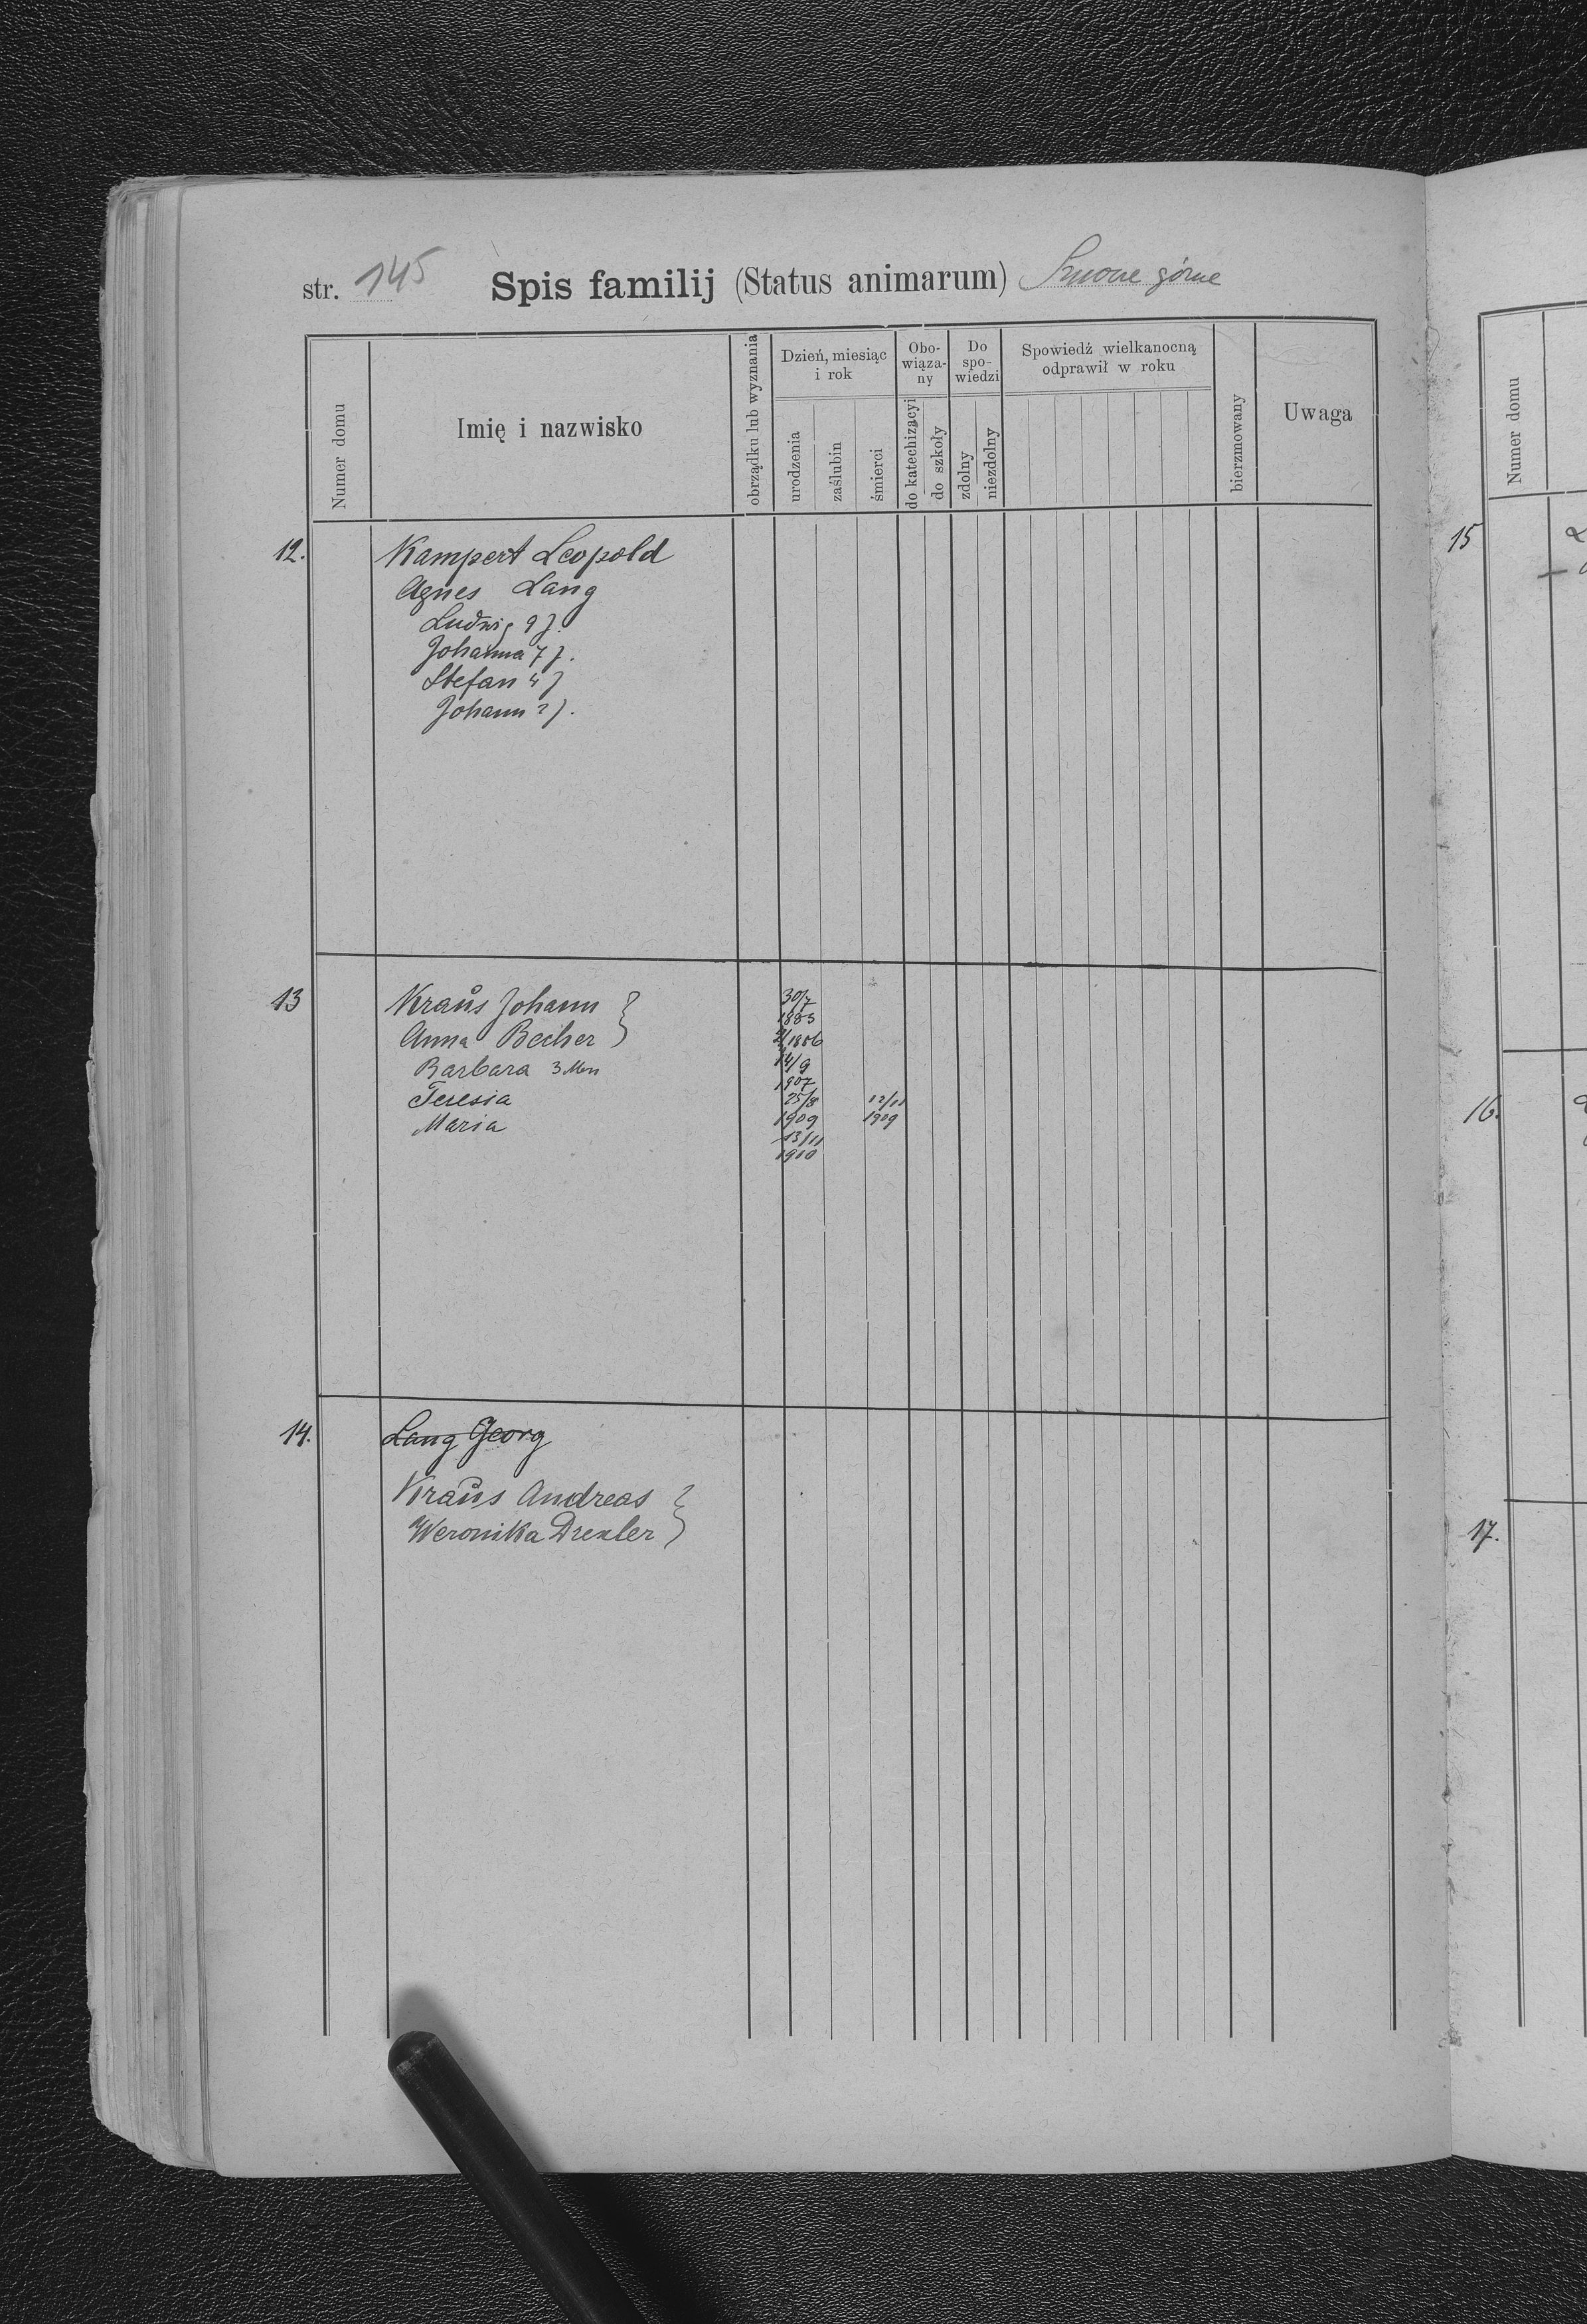 str. 145 Spis familij (Status animarum) górne
Numer domu
Imię i nazwisko
obrządku lub wyznania
Dzień, miesiąc i rok
urodzenia
zaślubin
śmierci
Obo-wiąza-ny
do katechizącyi
do szkoły
Do spo-wiedzi
zdolny
niezdolny
Spowiedź wielkanocną odprawił w roku
bierzmowany
Uwaga
12. Kampert Leopold
Agnes Lang
Ludwig 9 J.
Johanna 7 J.
Stefan 4 J
Johann 2 J.
13 Kraus Johann 30/7 1883
Anna Becher 1886
Barbara 3 Mon 14/9 1907
Teresia 25/8 1909 12/11 1909
Maria 13/11 1910
14. Lang Georg
Kraus Andreas
Weronika Drexler
Numer domu
15
16.
17.